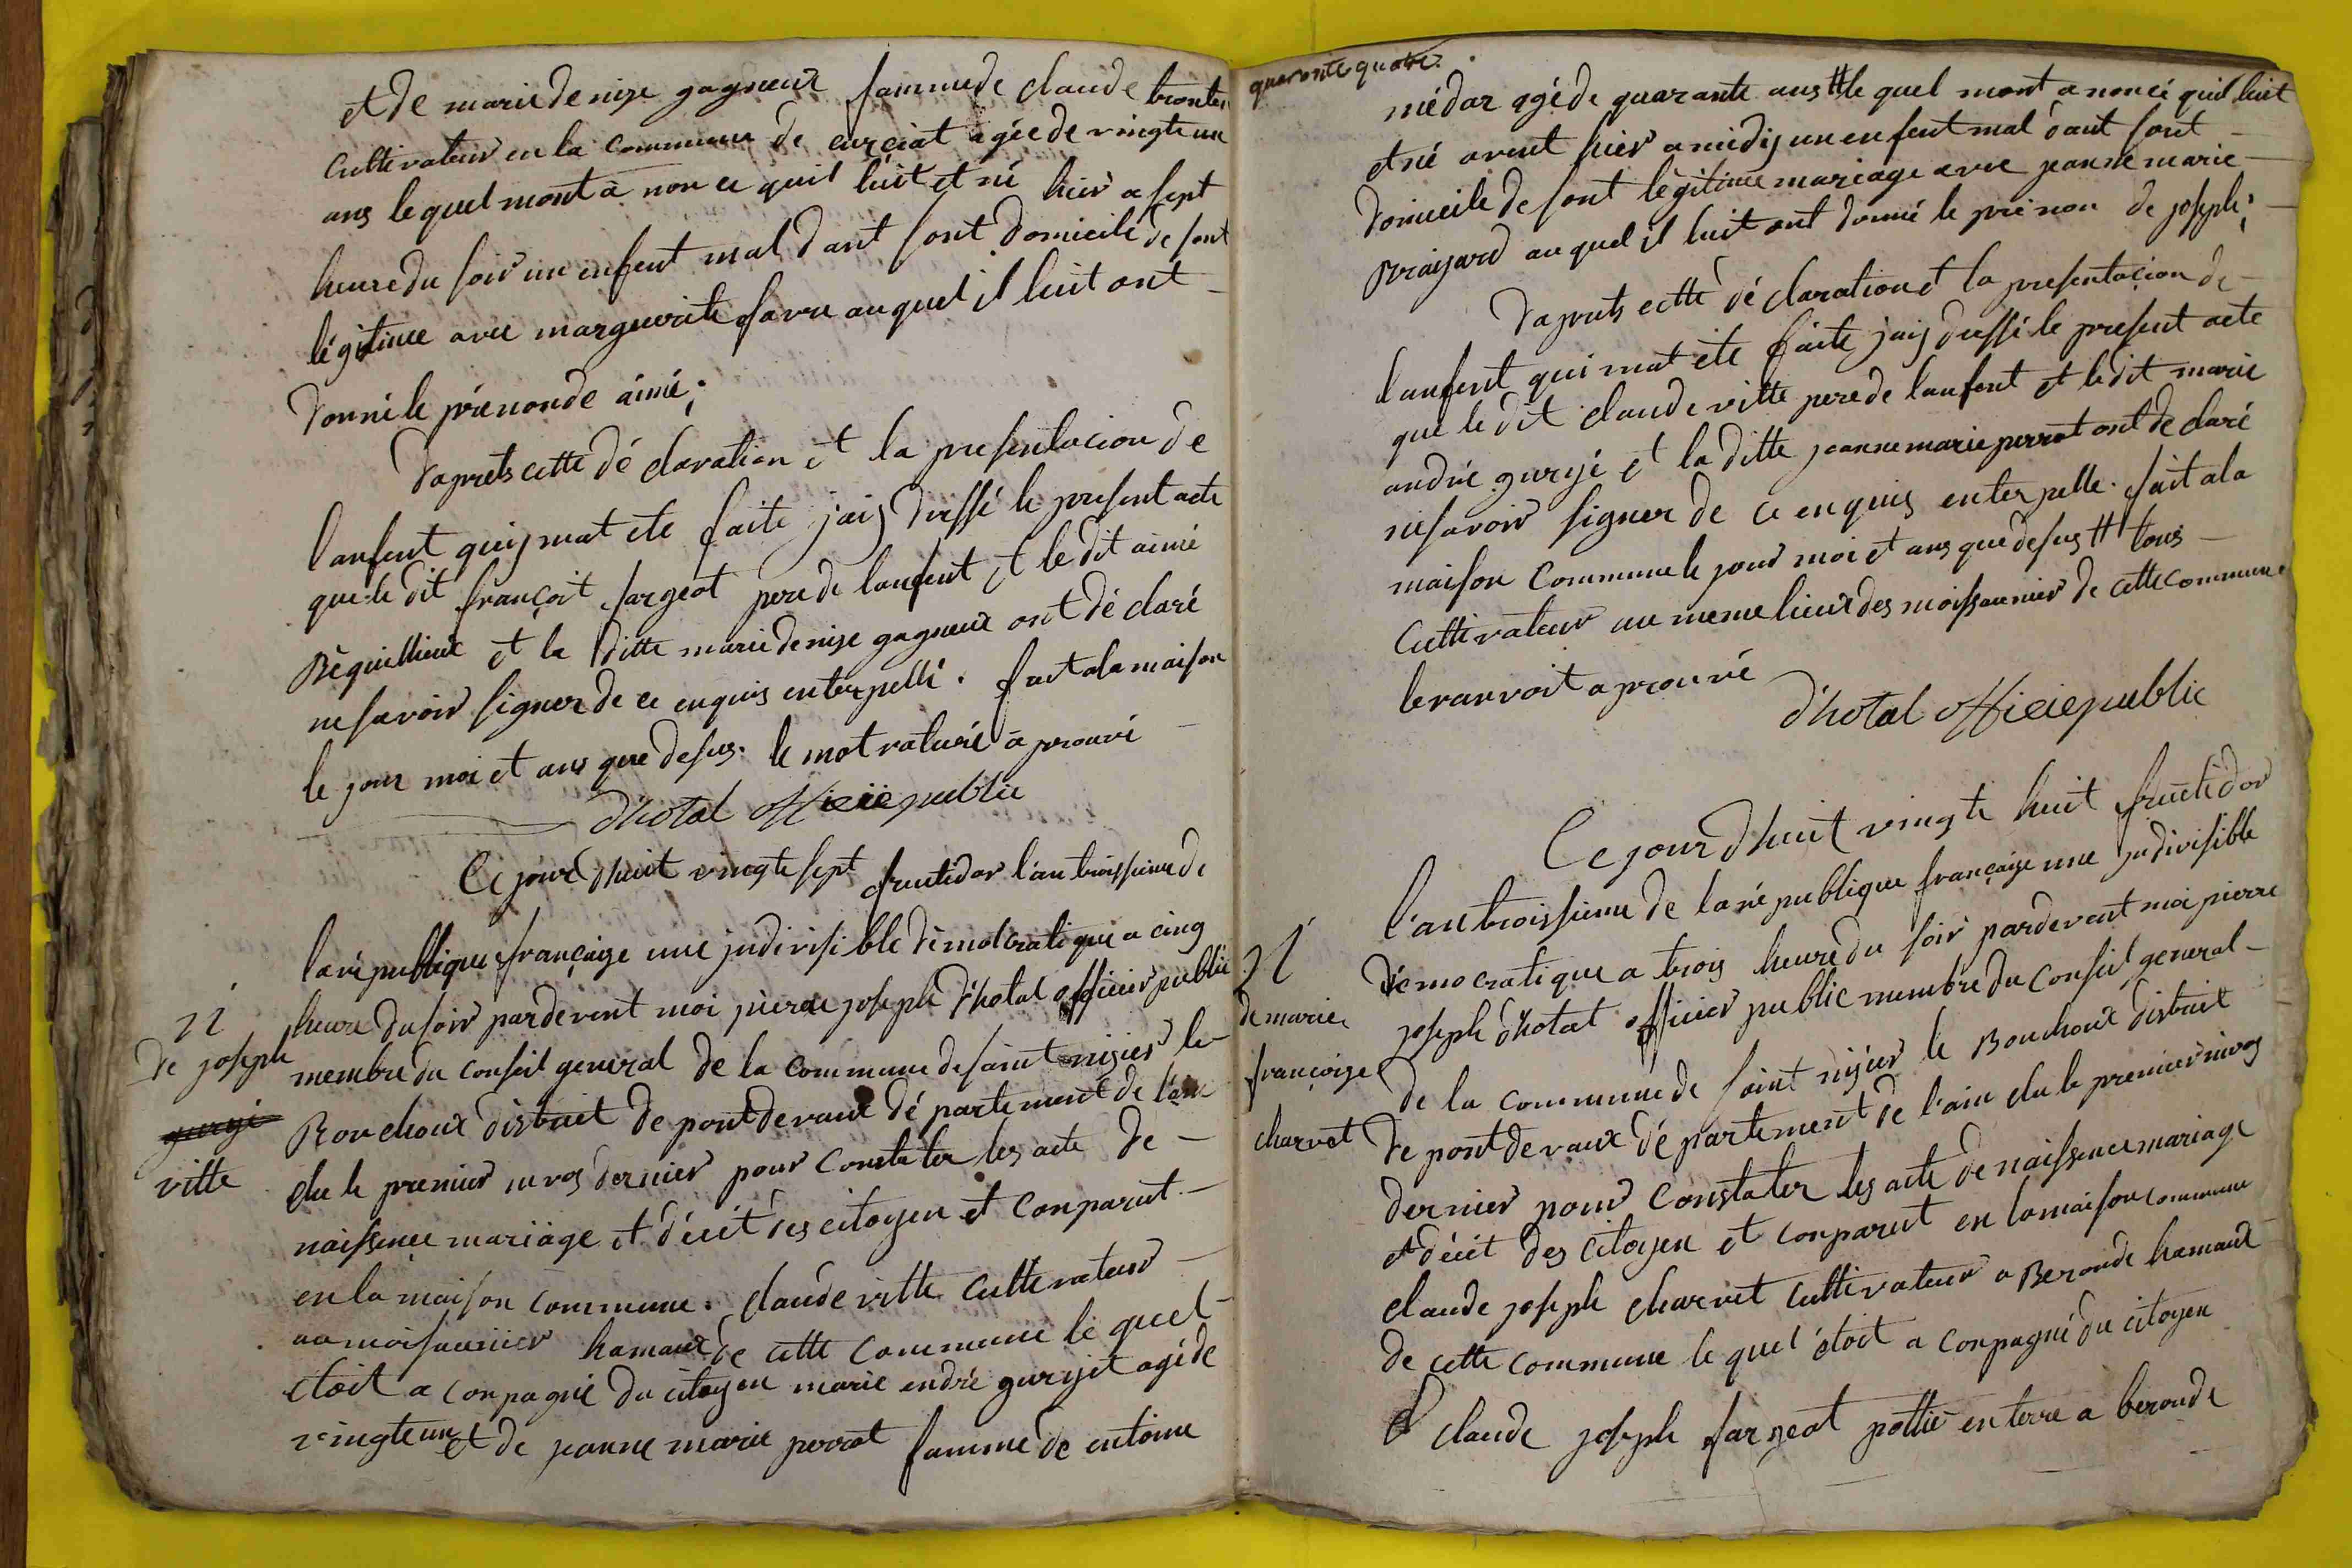 et de marie denise gagneux famme de claude
cultivateur en la commune de curciat agée de vingte un
ans le quel mont a non ce quil luit et né hier a sept
heure du soir un enfent mal dant sont domicile de sont
légitime avec marguerite favre au quel il luit ont
donné le prénon de aimé;
daprets cette dé claration et la presentacion de
lanfent quij mat ete faite jaij dressé le present acte
que le dit françoit fargeot pere de lanfent et le dit aimé
Bèquillieux et la ditte marie denise gagneux ont dé claré
ne savoir signer de ce enquis enterpellé. fait ala maison
le jour moi et ans que desus. le mot raturé a prouvé
d'hotal officié public
Ce jourd'huit vingte sept fructidor l'an troissieme de
la ré publique française une jndivisible démolcratique a cinq
heure du soir pardevent moi pierre joseph d'hotal officier public
membre du conseil general de la commune de saint nizier le
Bouchoux distrait de pontdevaux dé partement de l'ain
elu le premier nivos dernier pour constater les acte de
naissence mariage et décét des citoyen et conparut
en la maison commune. claude vitte cultivateur
au moisonnier hamaux de cette commune le quel
étoit a conpagné du citoyen marie endré gurijet agé de
vingte un et de jeanne marie perrot famme de entoine
N
de joseph
gurije
vitte
quarante quatre.
médar agé de quarante ans # le quel mont a noncé quil luit
et né avent hier a midij un enfent mal dant sont
domicile de sont légitime mariage avec jeanne marie
Braijard au quel il luit ont donné le prénon de joseph;
daprets cette dé claration et la presentacion de
lanfent qui mat ete faite jaij dressé le present acte
que le dit claude vitte pere de lanfent et le dit marie
andré gurijé et la ditte jeanne marie perrot ont de claré
ne savoir signer de ce enquis enterpelle. fait ala
maison commune le jour moi et ans que desus # tous
cultivateur au meme lieux des moissonnier de cette commune
le ranvoit a prouvé
d'hotal officié public
Ce jourd'huit vingte huit fructidor
l'an troissieme de la ré publique française une jndivisible
démocratique a trois heure du soir pardevent moi pierre
joseph d'hotal officier public membre du conseil general
de la commune de saint nizier le Bouchoux distrait
de pontdevaux dé partement de l'ain elu le premier nivos
dernier pour constater les acte de naissence mariage
et décét des citoyen et conparut en la maison commune
claude joseph charvet cultivateur a Beronde hamaux
de cette commune le quel étoit a conpagné du citoyen
claude joseph fargeot pottié en terre a beronde
N
de marie
françoize
charvet